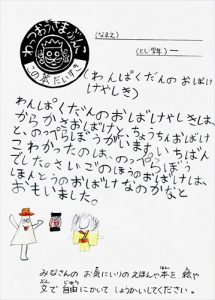 わつおかまがんこ
この本だいすき
(なまえ)
(とし・学年)
(わんぱくだんのおばけ
けやしき)
わんぱくだんのおばけやしきは、
からかさおばけと、ちょうちんおばけ
と、のっぺらぼうがいます。いちばん
こわかったのは、のっぺらぼう
でした。さいごのほうのおばけは、
ほんとうのおばけなのかなと
おもいました。
みなさんの お気にいりのえほんや本を 絵や
ほん
え
文で自由にかいて しょうかいしてください。
ぶん
じゆう